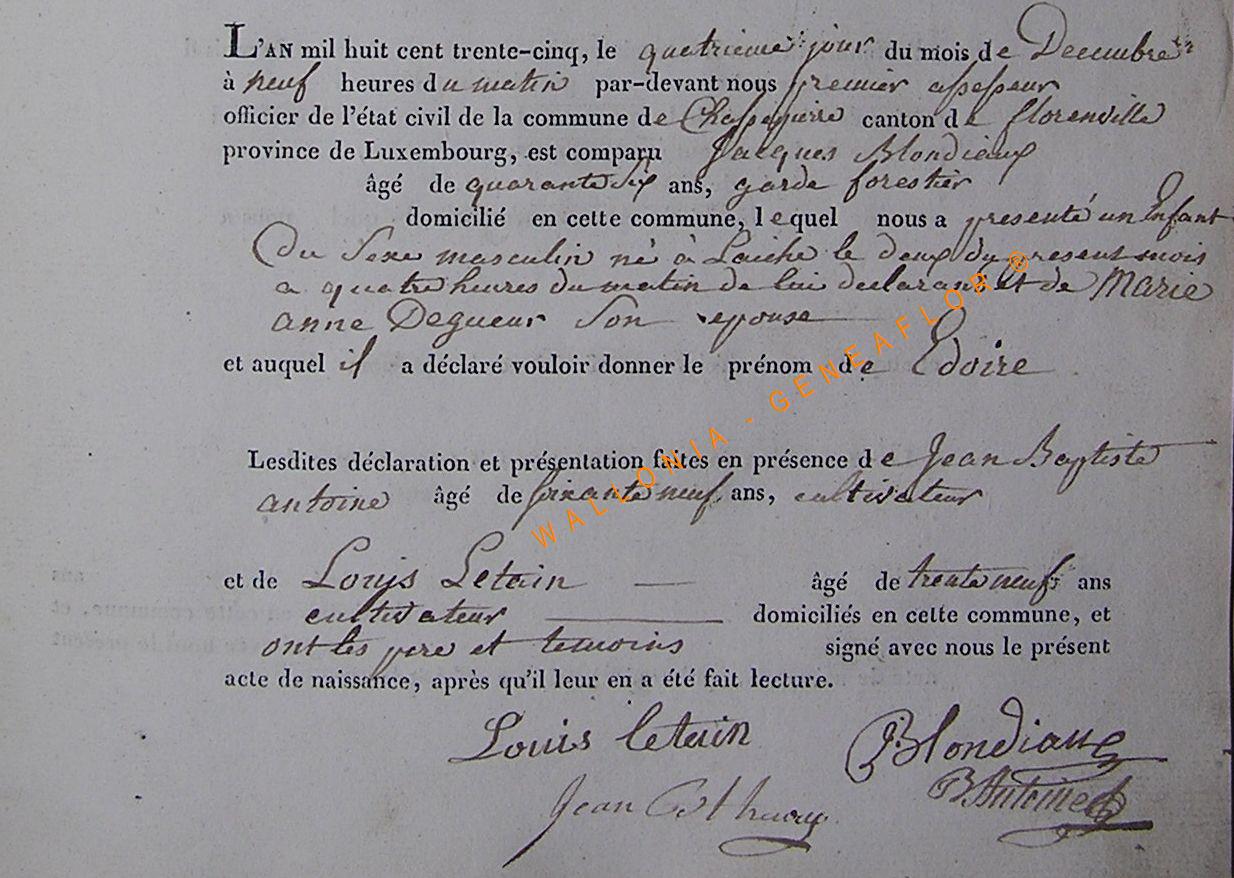 L'AN mil huit cent trente-cinq, le quatrieme jour du mois de Decembre
à neuf heures du matin par-devant nous premier assesseur
officier de l'état civil de la commune de Chassepierre canton de florenville
province de Luxembourg, est comparu Jacques Blondiaux
âgé de quarante six ans, garde forestier
domicilié en cette commune, lequel nous a presenté un Enfant
Du Sexe masculin né à Laiche le deux du present mois
a quatre heures du matin de lui declarant et de Marie
anne Degueur Son epouse
et auquel il a déclaré vouloir donner le prénom de Edoire
Lesdites déclaration et présentation faites en présence de Jean Baptiste
antoine âgé de soixante neuf ans, cultivateur
et de Louis Letain — âgé de trente neuf ans
cultivateur domiciliés en cette commune, et
ont les pere et temoins signé avec nous le présent
acte de naissance, après qu'il leur en a été fait lecture.
Louis letain Blondiaux
Jean B Antoine
WALLONIA - GENEAFLOR ®